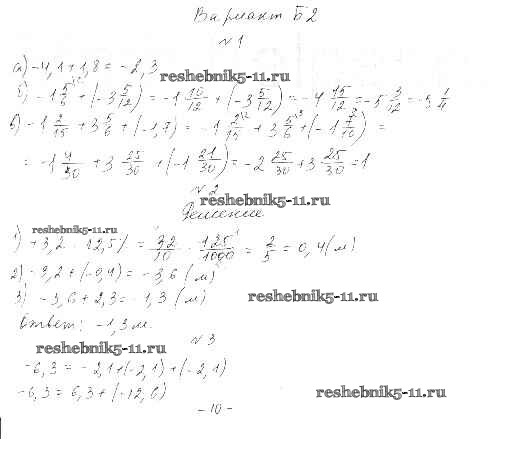 Вариант Б2
№1
а) -4,1+1,8 = -2,3
reshebnik5-11.ru
б) -1 5/6 + (-3 5/12) = -1 10/12 + (-3 5/12) = -4 15/12 = -5 3/12 = -5 1/4
в) -1 2/15 + 3 5/6 + (-1,7) = -1 2/15 + 3 5/6 + (-1 7/10) =
= -1 4/30 + 3 25/30 + (-1 21/30) = -2 25/30 + 3 25/30 = 1
№2
reshebnik5-11.ru
Решение
reshebnik5-11.ru
1) +3,2 · 12,5% = 32/10 · 125/1000 = 2/5 = 0,4 (м)
2) -3,2 + (-0,4) = -3,6 (м)
3) -3,6 + 2,3 = -1,3 (м)
reshebnik5-11.ru
Ответ: -1,3 м.
№3
reshebnik5-11.ru
-6,3 = -2,1 + (-2,1) + (-2,1)
-6,3 = 6,3 + (-12,6)
reshebnik5-11.ru
- 10 -